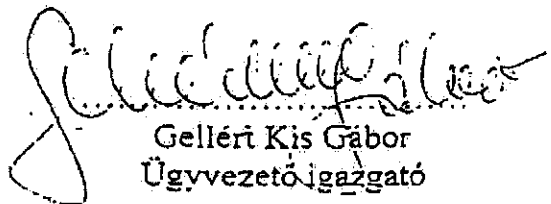 Gellért Kis Gábor
Ügyvezető igazgató